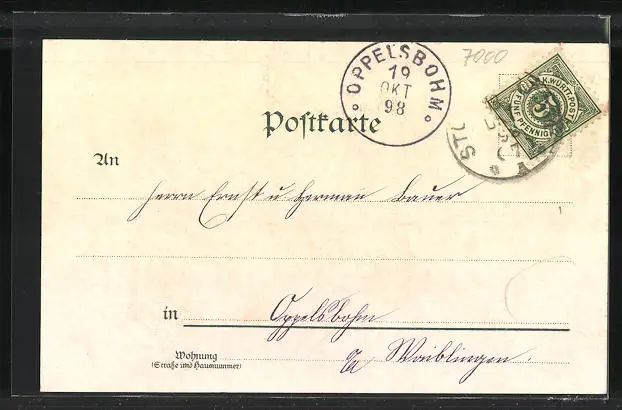 7000
OPPELSBOHM
19
OKT
98
K. WÜRTT. POST
5
FÜNF PFENNIG
Postkarte
An
Herrn Ernst u Herman Bauer
in Oppelsbohm
Wohnung
(Straße und Hausnummer)
Waiblingen.